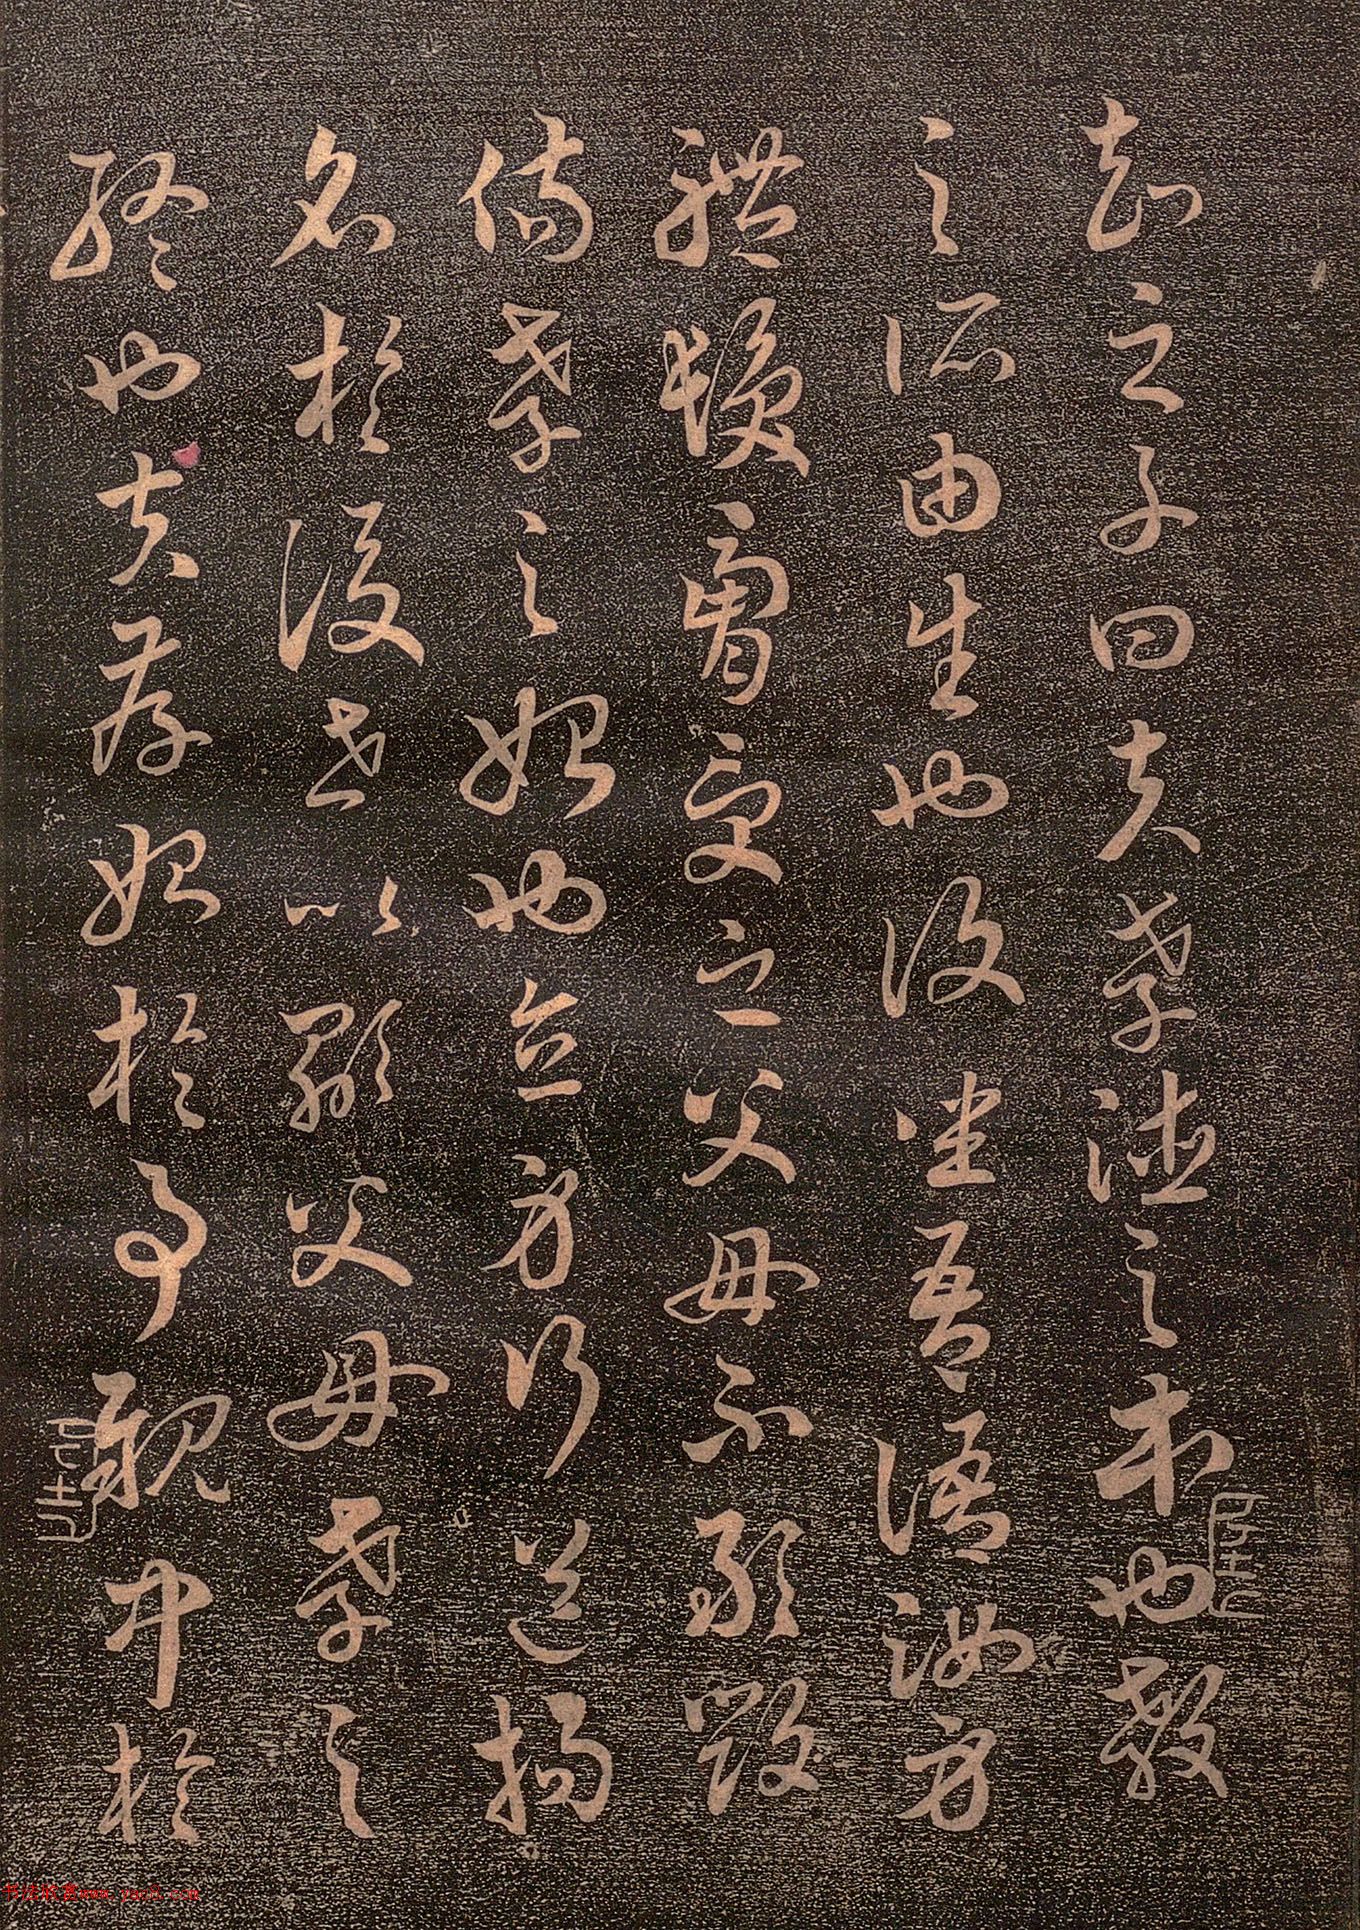 知之子曰夫孝德之本也教
之所由生也復坐吾語汝身
體髮膚受之父母不敢毀
傷孝之始也立身行道揚
名於後世以顯父母孝之
終也夫孝始於事親中於